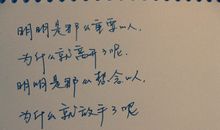 明明是那么重要的人,
为什么就离开了呢.
明明是那么想念的人,
为什么就放手了呢